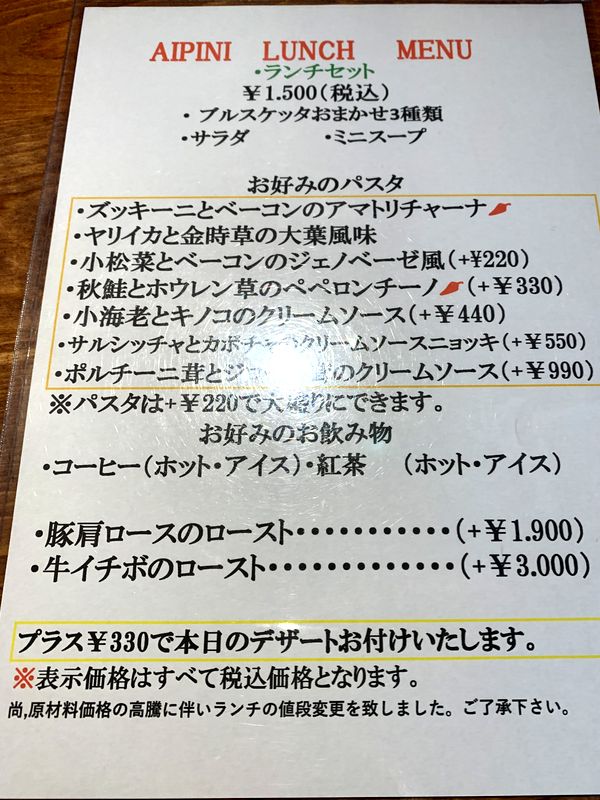 AIPINI LUNCH MENU
・ランチセット
￥1.500(税込)
・ブルスケッタおまかせ3種類
・サラダ ・ミニスープ
お好みのパスタ
・ズッキーニとベーコンのアマトリチャーナ
・ヤリイカと金時草の大葉風味
・小松菜とベーコンのジェノベーゼ風(+¥220)
・秋鮭とホウレン草のペペロンチーノ(+￥330)
・小海老とキノコのクリームソース(+￥440)
・サルシッチャとカボチャのクリームソースニョッキ(+￥550)
・ポルチーニ茸とジ のクリームソース(+￥990)
※パスタは+￥220で大盛りにできます。
お好みのお飲み物
・コーヒー(ホット・アイス)・紅茶 (ホット・アイス)
・豚肩ロースのロースト・・・・・・・・・・・(+￥1.900)
・牛イチボのロースト・・・・・・・・・・・・・(+￥3.000)
プラス￥330で本日のデザートお付けいたします。
※表示価格はすべて税込価格となります。
尚,原材料価格の高騰に伴いランチの値段変更を致しました。ご了承下さい。